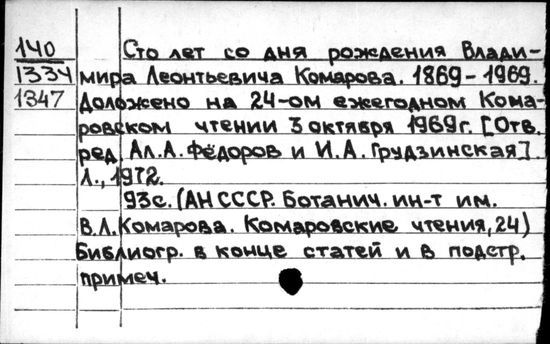 140 Сто лет со дня рождения Влади-
1334 мира Леонтьевича Комарова. 1869-1969.
1347 Доложено на 24-ом ежегодном Кома-
ровском чтении 3 октября 1969г. [Отв.
ред. Ал.А. Фёдоров и И.А. Грудзинская].
Л., 1972.
93с. (АН СССР. Ботанич. ин-т им.
В.Л. Комарова. Комаровские чтения, 24)
Библиогр. в конце статей и в подстр.
примеч.